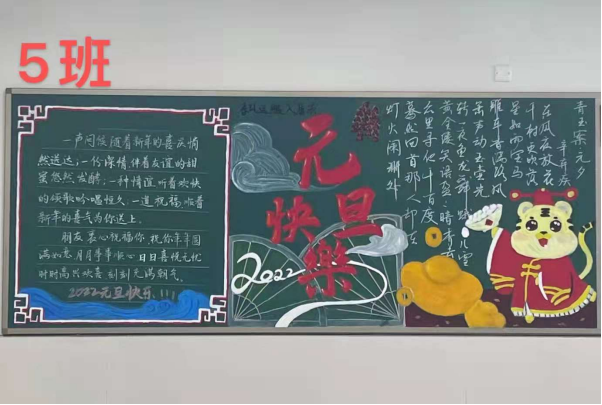 5班
一声问候随着新年的喜庆悄
然送达;一份深情伴着友谊的甜
蜜悠然发酵;一种情谊听着欢快
的颂歌吟唱恒久;一道祝福顺着
新年的喜气为你送上。
朋友衷心祝福你,祝你年年圆
满如意,月月事事顺心,日日喜悦无忧
时时高兴欢喜,刻刻充满朝气。
2022元旦快乐!!!
元旦
快樂
2022
青玉案 元夕
辛弃疾
东风夜放花
千树更吹落
星如雨宝马
雕车香满路凤
箫声动玉壶光
转一夜鱼龙舞 蛾儿雪
黄金缕笑语盈盈暗香去
众里寻他千百度
蓦然回首那人却在
灯火阑珊处